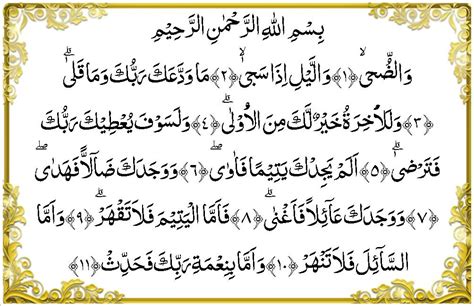 بِسْمِ اللهِ الرَّحْمٰنِ الرَّحِيْمِ
وَالضُّحٰىۙ ﴿١﴾ وَالَّيْلِ اِذَا سَجٰىۙ ﴿٢﴾ مَا وَدَّعَكَ رَبُّكَ وَمَا قَلٰىۗ
﴿٣﴾ وَلَلْاٰخِرَةُ خَيْرٌ لَّكَ مِنَ الْاُوْلٰىۗ ﴿٤﴾ وَلَسَوْفَ يُعْطِيْكَ رَبُّكَ
فَتَرْضٰىۗ ﴿٥﴾ اَلَمْ يَجِدْكَ يَتِيْمًا فَاٰوٰىۖ ﴿٦﴾ وَوَجَدَكَ ضَاۤلًّا فَهَدٰىۖ
﴿٧﴾ وَوَجَدَكَ عَاۤئِلًا فَاَغْنٰىۗ ﴿٨﴾ فَاَمَّا الْيَتِيْمَ فَلَا تَقْهَرْۗ ﴿٩﴾ وَاَمَّا
السَّاۤئِلَ فَلَا تَنْهَرْۗ ﴿١٠﴾ وَاَمَّا بِنِعْمَةِ رَبِّكَ فَحَدِّثْ ﴿١١﴾